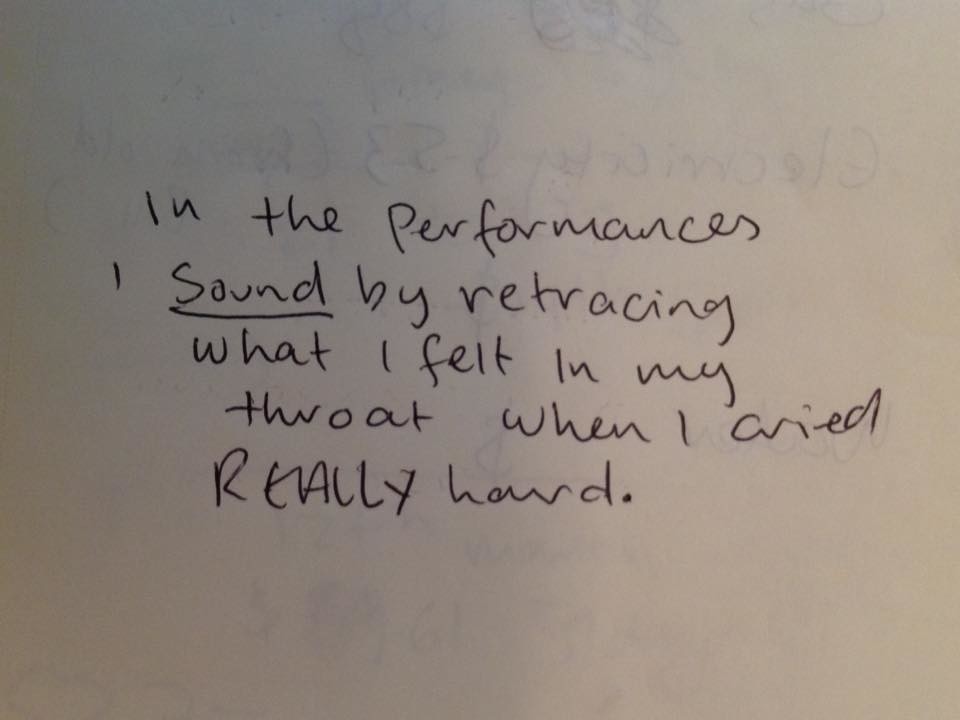 In the performances
I Sound by retracing
what I felt in my
throat when I cried
REALLY hard.